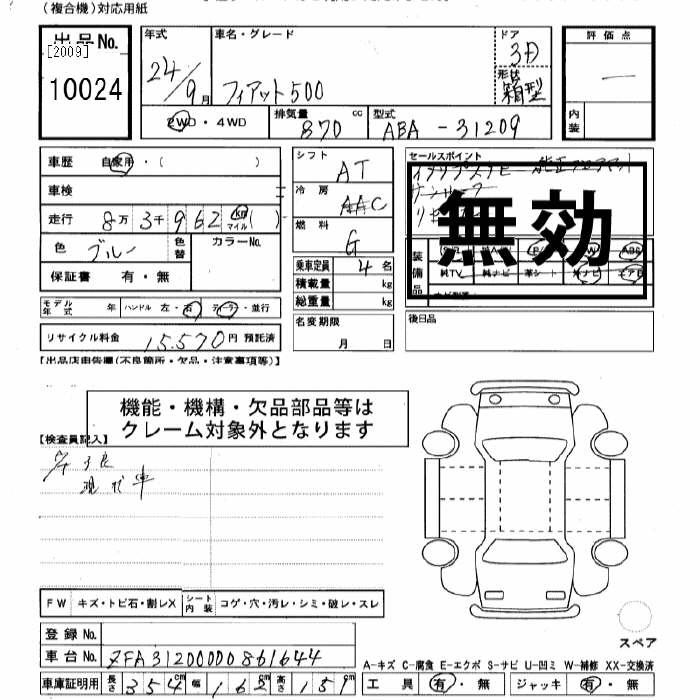 (複合機)対応用紙
出品No.
[2009]
10024
年式
24/9月
車名・グレード
フィアット500
ドア
3D
形状
箱型
評価点
—
内装
2WD・4WD
排気量
870 cc
型式
ABA-31209
車歴 自家用・( )
車検
走行 8万3千962 km マイル( )
色 ブルー 色替 カラーNo.
保証書 有・無
モデル年式 年 ハンドル 左・右 デ・並行
リサイクル料金 15,570円 預託済
シフト
AT
冷房
AAC
燃料
G
乗車定員 4名
積載量 kg
総重量 kg
名変期限
月 日
セールスポイント
無効
装備品
純TV 純ナビ 革シート エアB
後日品
【出品店申告欄(不良箇所・欠品・注意事項等)】
機能・機構・欠品部品等は
クレーム対象外となります
【検査員記入】
現状車
FW キズ・トビ石・割レX シート内装 コゲ・穴・汚レ・シミ・破レ・スレ
登録No.
車台No. ZFA3120000J861644
車庫証明用 長さ 354cm 幅 162cm 高さ 151cm
スペア
A-キズ C-腐食 E-エクボ S-サビ U-凹ミ W-補修 XX-交換済
工具 有・無 ジャッキ 有・無